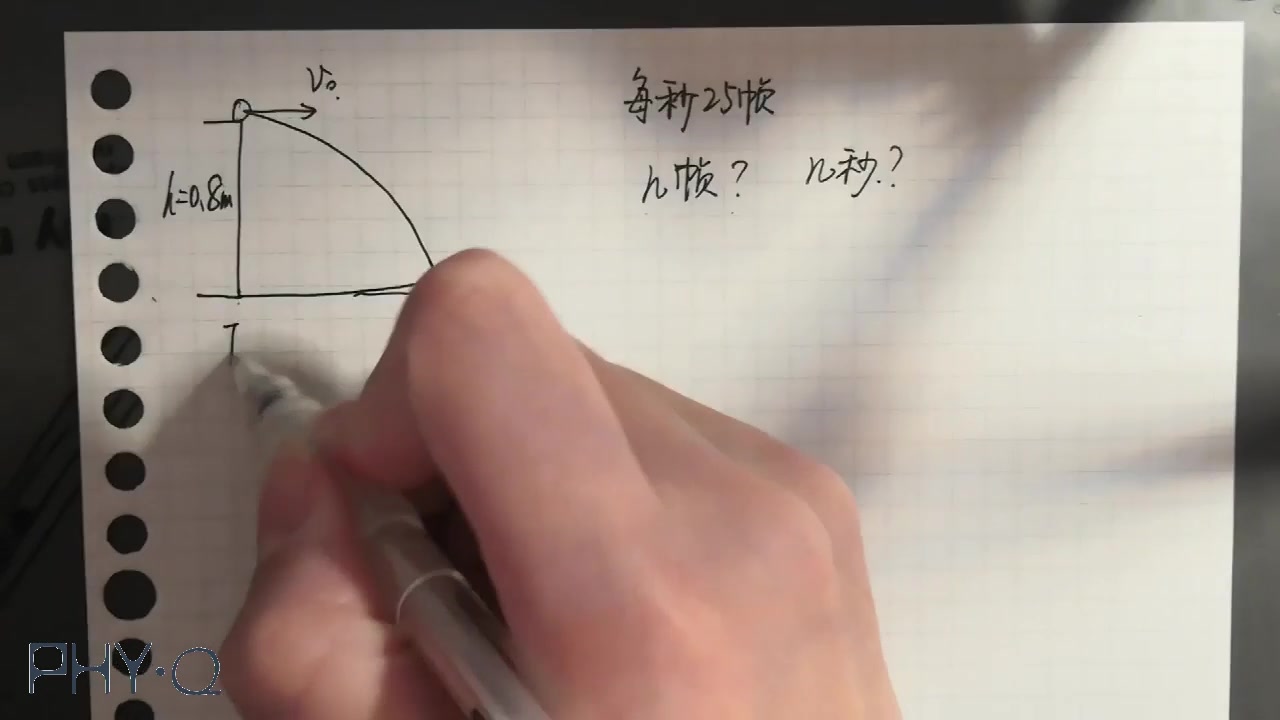 v₀
每秒25帧
n帧? n秒?
h=0.8m
T
PHY·Q